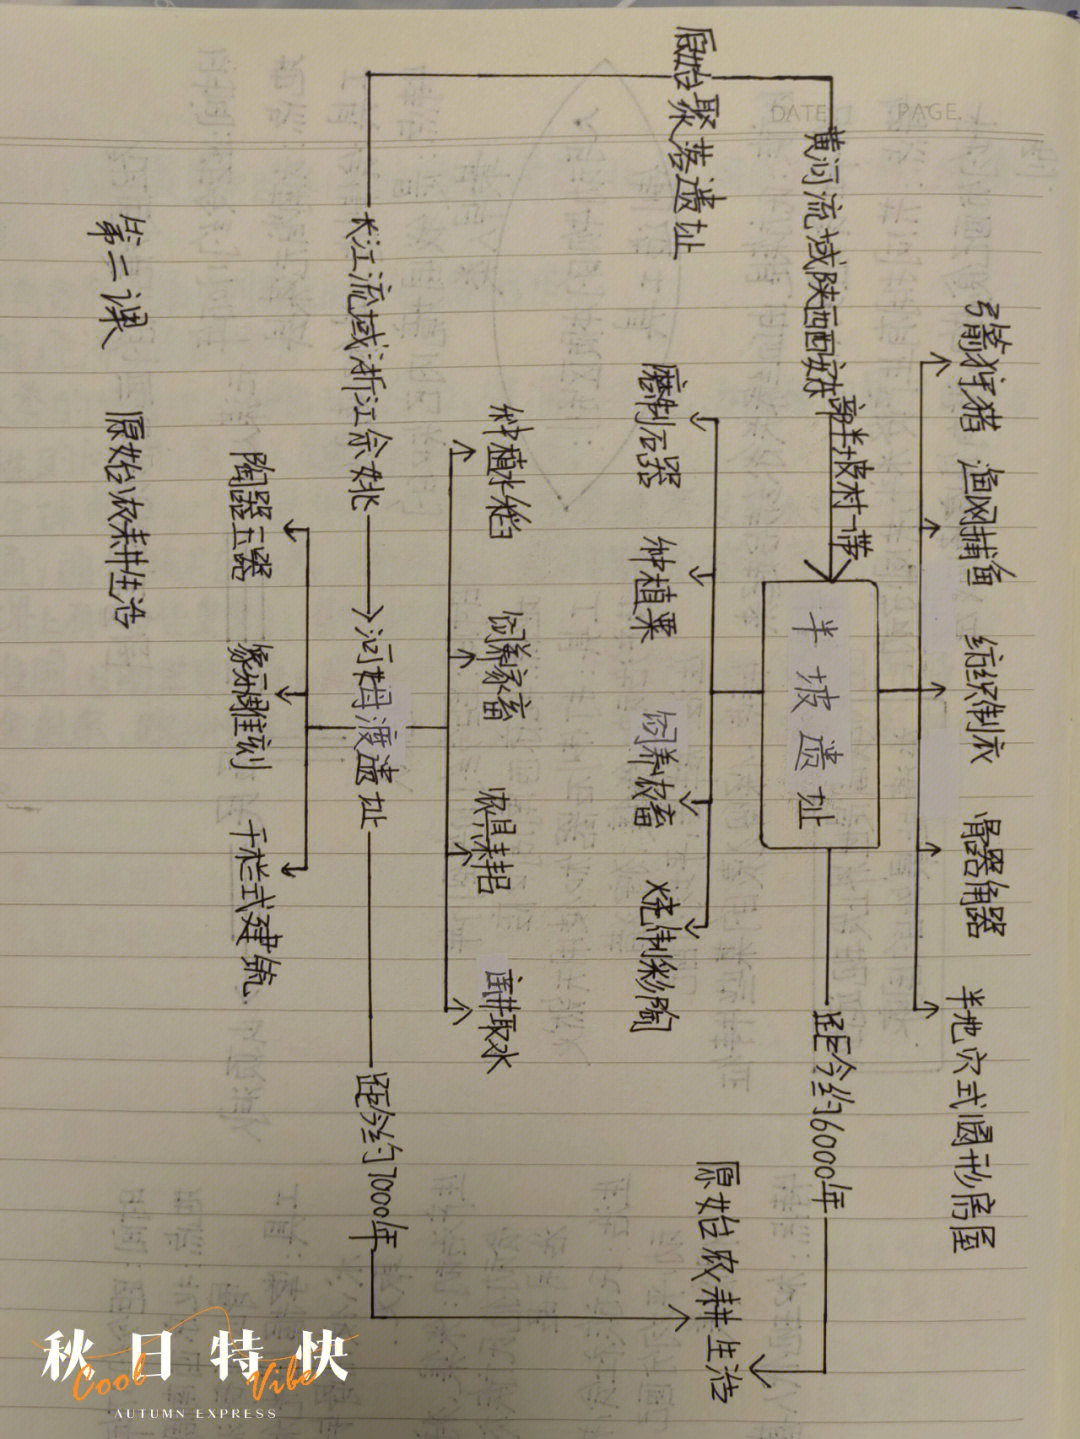 DATE PAGE
弓箭狩猎 渔网捕鱼 纺织制衣 骨器角器 半地穴式圆形房屋
黄河流域陕西西安 半坡村一带 半坡遗址 距今约6000年
原始聚落遗址 原始农耕生活
磨制石器 种植粟 饲养农畜 烧制彩陶
种植水稻 饲养家畜 农具耒耜 井取水
长江流域浙江余姚 河姆渡遗址 距今约7000年
陶器玉器 象牙雕刻 干栏式建筑
第二课 原始农耕生活
秋日特快
Cool Vibe
AUTUMN EXPRESS